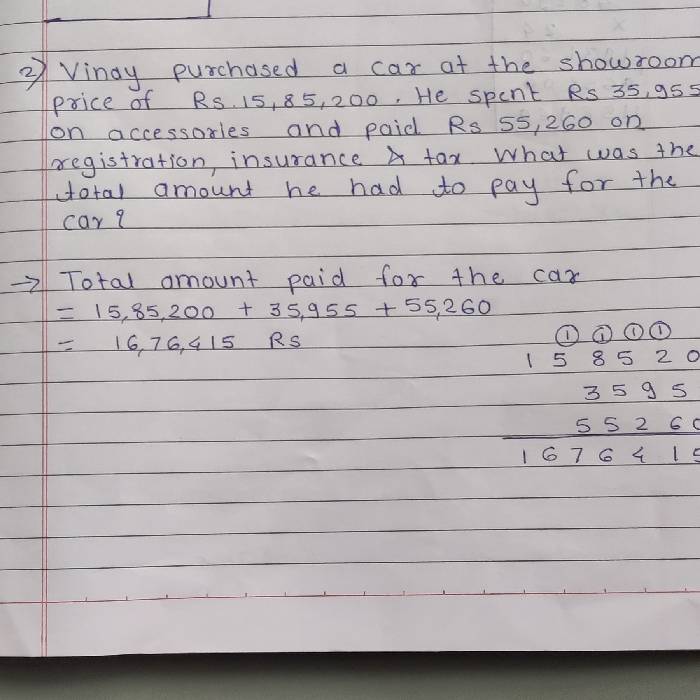 2) Vinay purchased a car at the showroom
price of Rs. 15,85,200. He spent Rs 35,955
on accessories and paid Rs 55,260 on
registration, insurance & tax What was the
total amount he had to pay for the
car?
→ Total amount paid for the car
= 15,85,200 + 35,955 + 55,260
= 16,76,415 RS
1 1 1 1
1 5 8 5 2 0
3 5 9 5
5 5 2 6 0
1 6 7 6 4 1 5